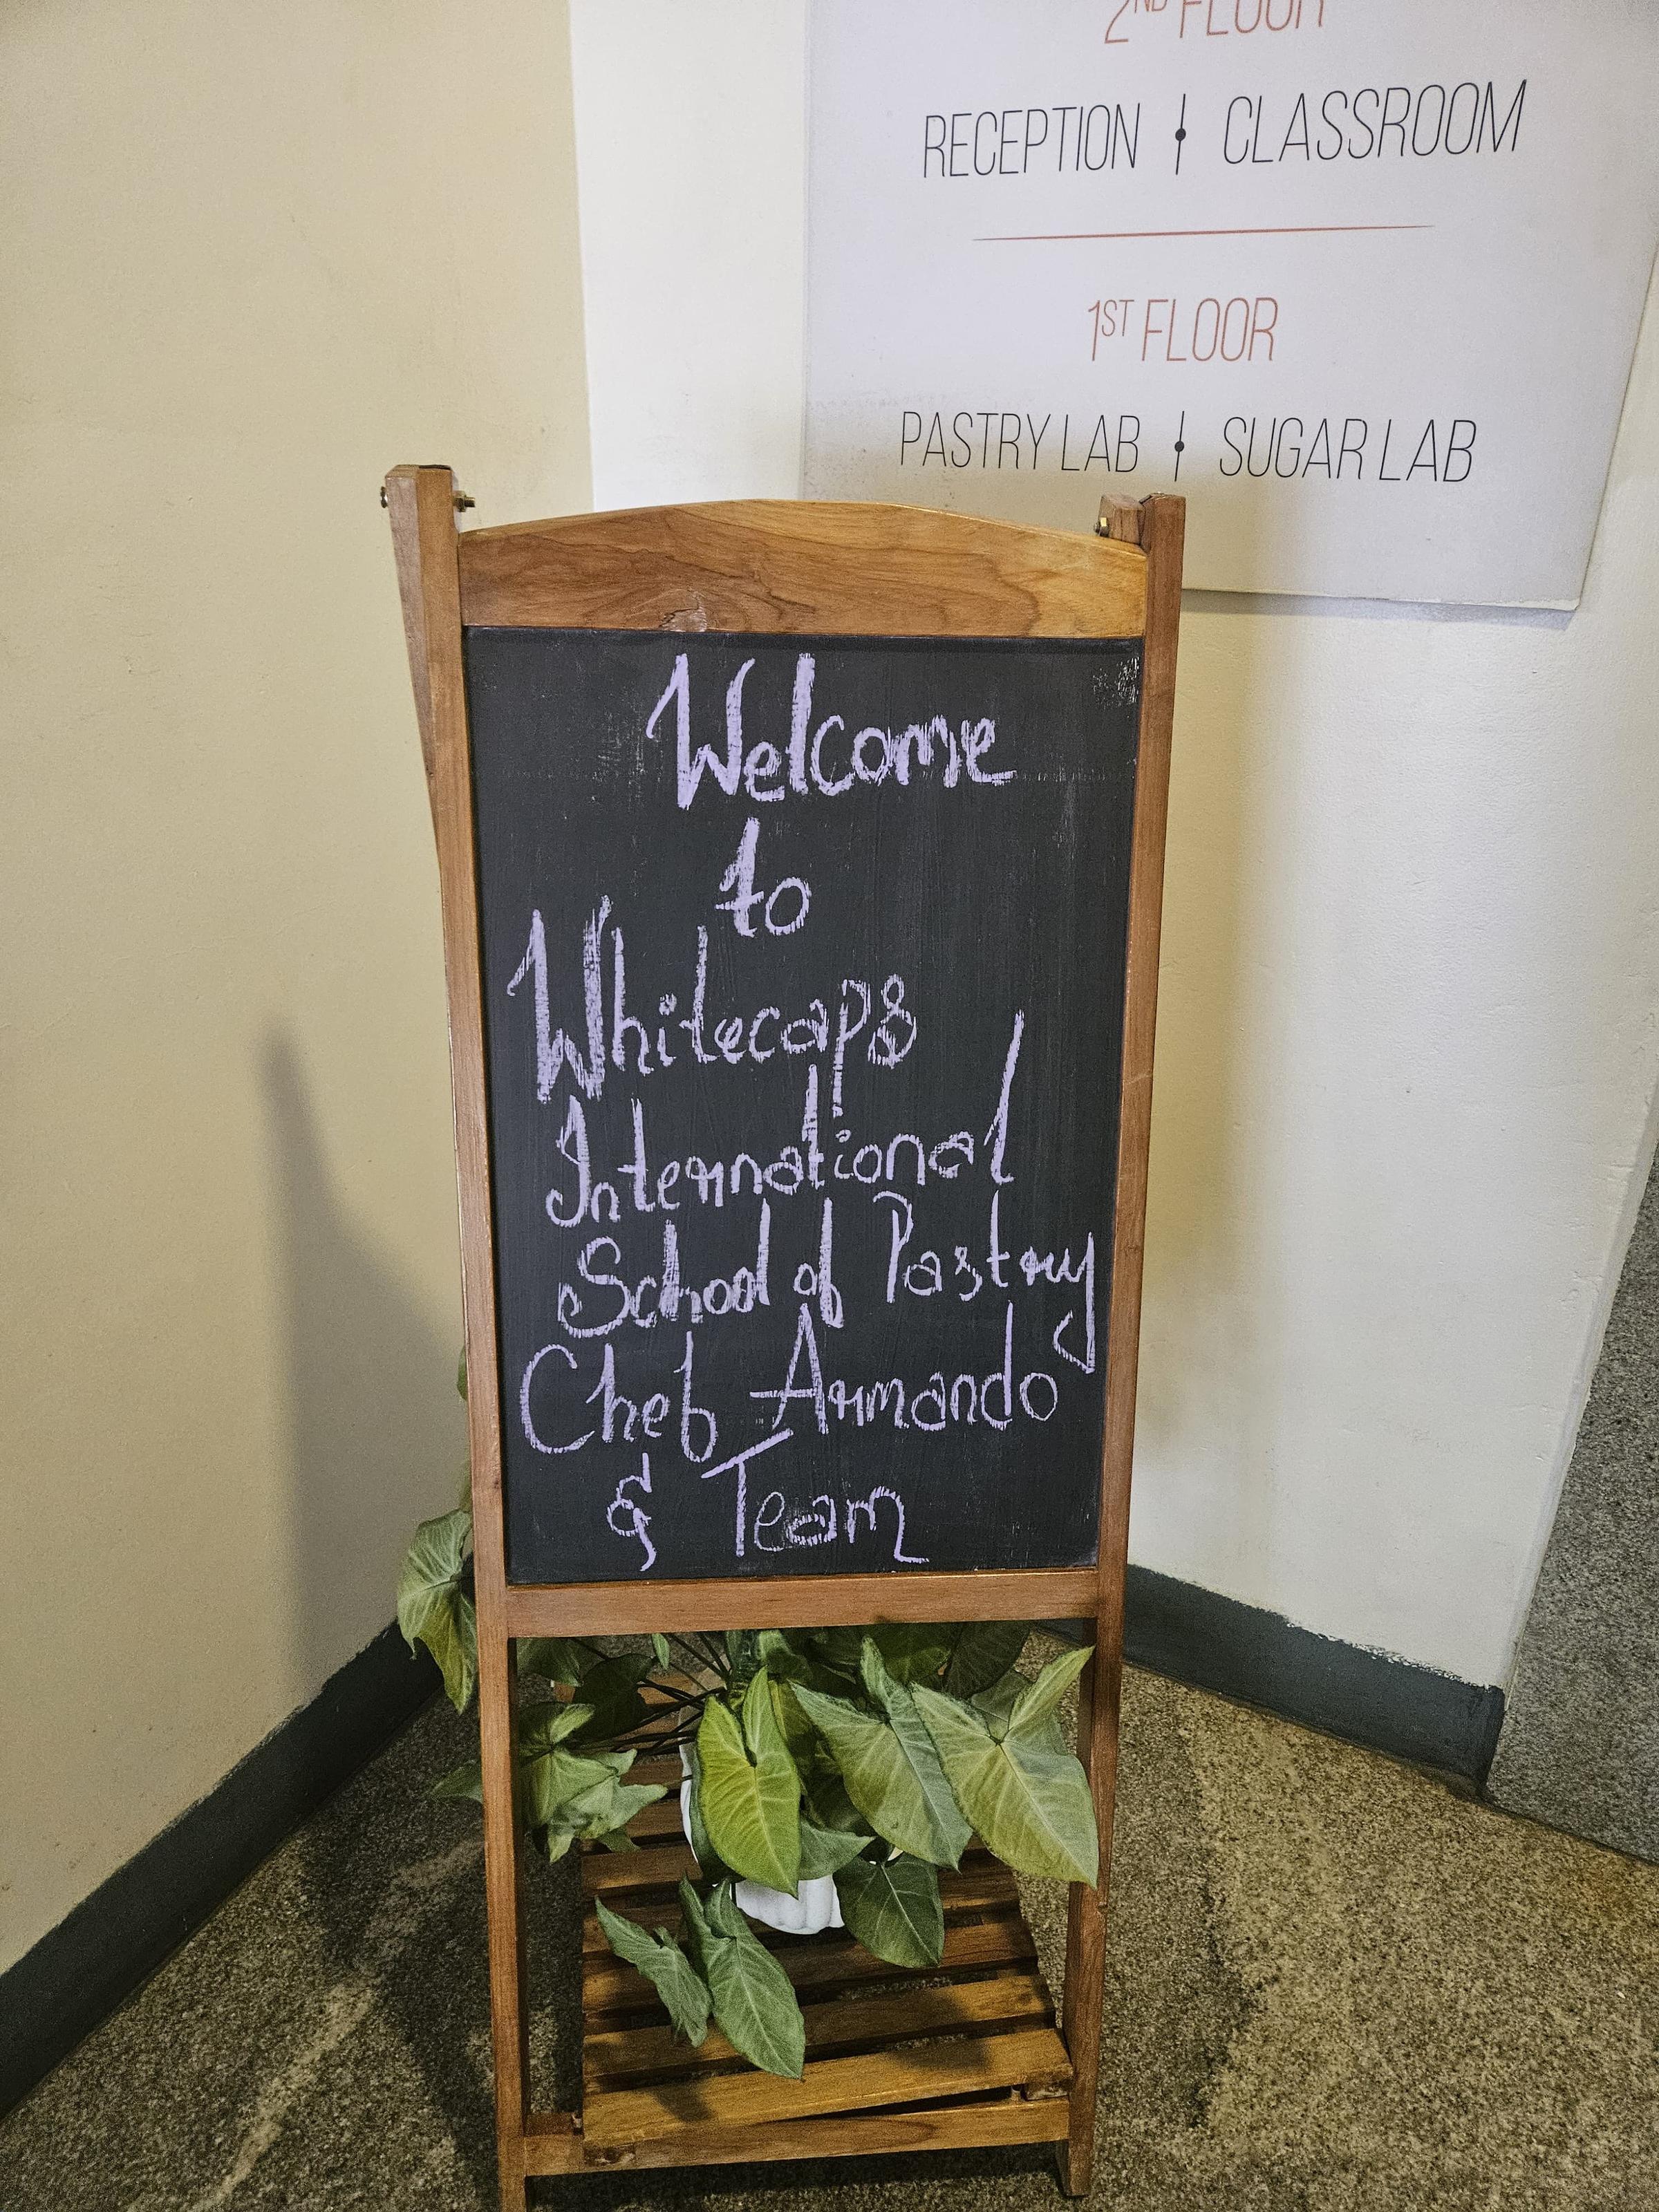 2ND FLOOR
RECEPTION | CLASSROOM
1ST FLOOR
PASTRY LAB | SUGAR LAB
Welcome
to
Whitecaps
International
School of Pastry
Chef Armando
& Team